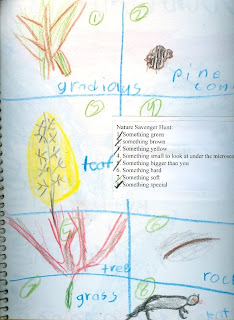 1
2
gradiaus
pine
con
5
Nature Savenger Hunt:
1. Something green
2. something brown
3. Something yellow
4. Something small to look at under the microsco
5. Something bigger than you
6. Something hard
7. Something soft
8. Something special
tree
roc
7
grass
8